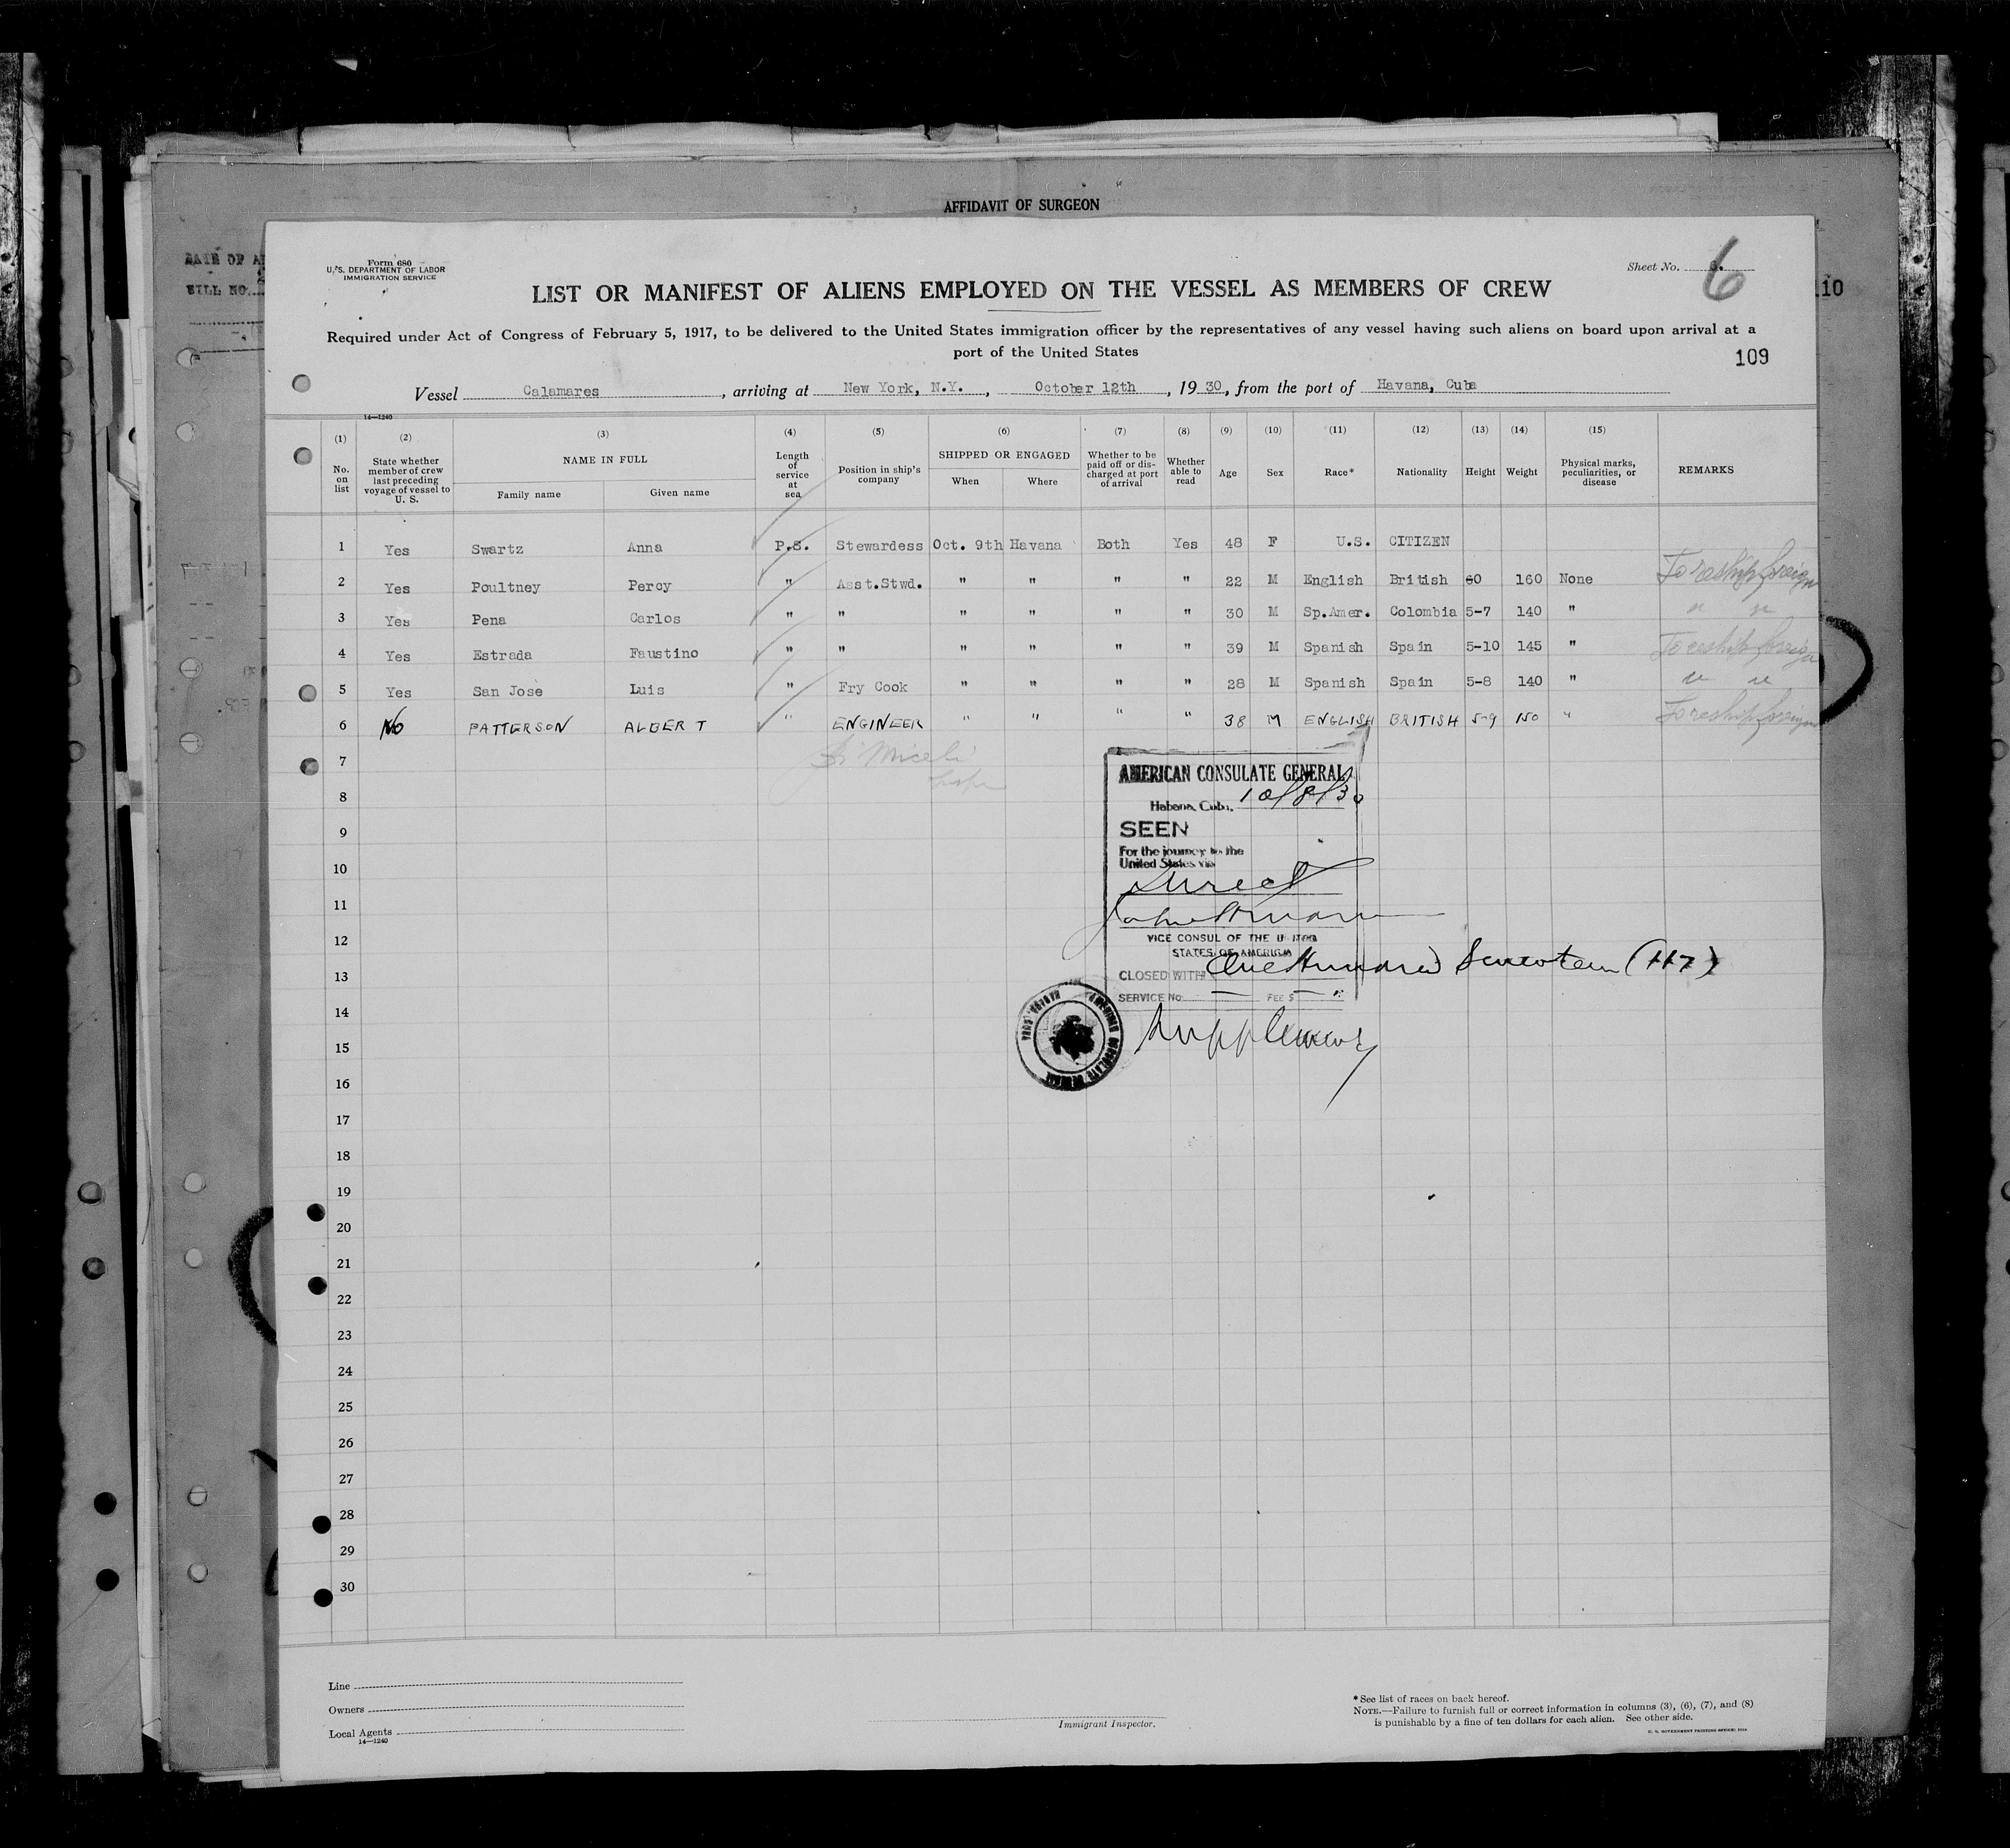 AFFIDAVIT OF SURGEON
DATE OF
BILL NO.
Form 680
U. S. DEPARTMENT OF LABOR
IMMIGRATION SERVICE
Sheet No. 6
LIST OR MANIFEST OF ALIENS EMPLOYED ON THE VESSEL AS MEMBERS OF CREW
Required under Act of Congress of February 5, 1917, to be delivered to the United States immigration officer by the representatives of any vessel having such aliens on board upon arrival at a
port of the United States
109
110
Vessel Calamares, arriving at New York, N.Y., October 12th, 1930, from the port of Havana, Cuba
14—1240
(1) (2) (3) (4) (5) (6) (7) (8) (9) (10) (11) (12) (13) (14) (15)
No. on list
State whether member of crew last preceding voyage of vessel to U. S.
NAME IN FULL
Family name
Given name
Length of service at sea
Position in ship's company
SHIPPED OR ENGAGED
When
Where
Whether to be paid off or discharged at port of arrival
Whether able to read
Age
Sex
Race*
Nationality
Height
Weight
Physical marks, peculiarities, or disease
REMARKS
1 Yes Swartz Anna P.S. Stewardess Oct. 9th Havana Both Yes 48 F U.S. CITIZEN
2 Yes Poultney Percy " Asst.Stwd. " " " " 22 M English British 60 160 None To reship foreign
3 Yes Pena Carlos " " " " " " 30 M Sp.Amer. Colombia 5-7 140 " " "
4 Yes Estrada Faustino " " " " " " 39 M Spanish Spain 5-10 145 " To reship foreign
5 Yes San Jose Luis " Fry Cook " " " " 28 M Spanish Spain 5-8 140 " " "
6 No PATTERSON ALBERT " ENGINEER " " " " 38 M ENGLISH BRITISH 5-9 150 " To reship foreign
7
8
9
10
11
12
13
14
15
16
17
18
19
20
21
22
23
24
25
26
27
28
29
30
AMERICAN CONSULATE GENERAL
Habana, Cuba, 10/8/30
SEEN
For the journey to the
United States via
Direct
VICE CONSUL OF THE UNITED
STATES OF AMERICA
CLOSED WITH One Hundred Seventeen (117)
SERVICE No. — FEE $ —
Supplementary
AMERICAN CONSULATE GENERAL
HABANA, CUBA
Line
Owners
Local Agents
14—1240
Immigrant Inspector.
*See list of races on back hereof.
NOTE.—Failure to furnish full or correct information in columns (3), (6), (7), and (8)
is punishable by a fine of ten dollars for each alien. See other side.